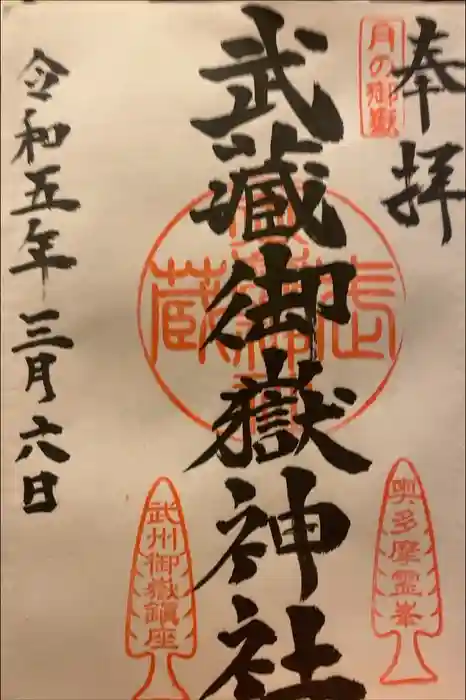 奉拝
月の御嶽
武蔵御嶽神社
奥多摩霊峯
武州御嶽鎮座
令和五年三月六日